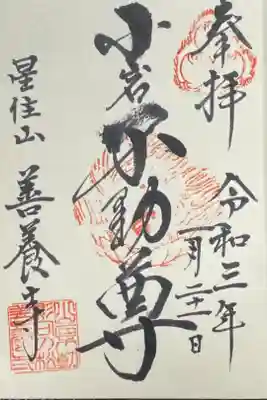 奉拝
令和三年
一月二十一日
小岩不動尊
星住山 善養寺